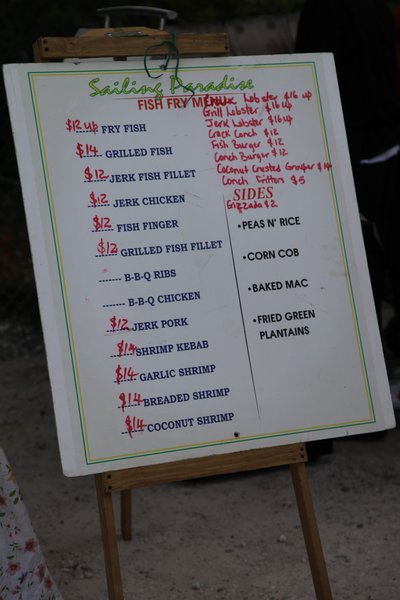 Sailing Paradise
FISH FRY MENU
$12 up FRY FISH
$14 GRILLED FISH
$12 JERK FISH FILLET
$12 JERK CHICKEN
$12 FISH FINGER
$12 GRILLED FISH FILLET
------ B-B-Q RIBS
------ B-B-Q CHICKEN
$12 JERK PORK
$14 SHRIMP KEBAB
$14 GARLIC SHRIMP
$14 BREADED SHRIMP
$14 COCONUT SHRIMP
Lobster $16 up
Grill Lobster $16 up
Jerk Lobster $16 up
Crack Conch $12
Fish Burger $12
Conch Burger $12
Coconut Crested Grouper $14
Conch Fritters $5
SIDES
Grizzada $2
•PEAS N' RICE
•CORN COB
•BAKED MAC
•FRIED GREEN
PLANTAINS